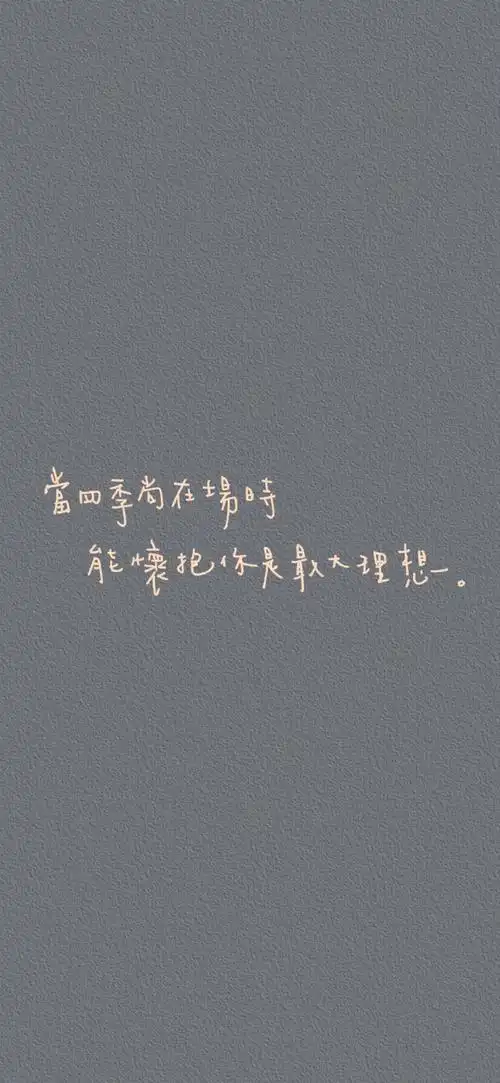 當四季尚在場時
能懷抱你是最大理想。